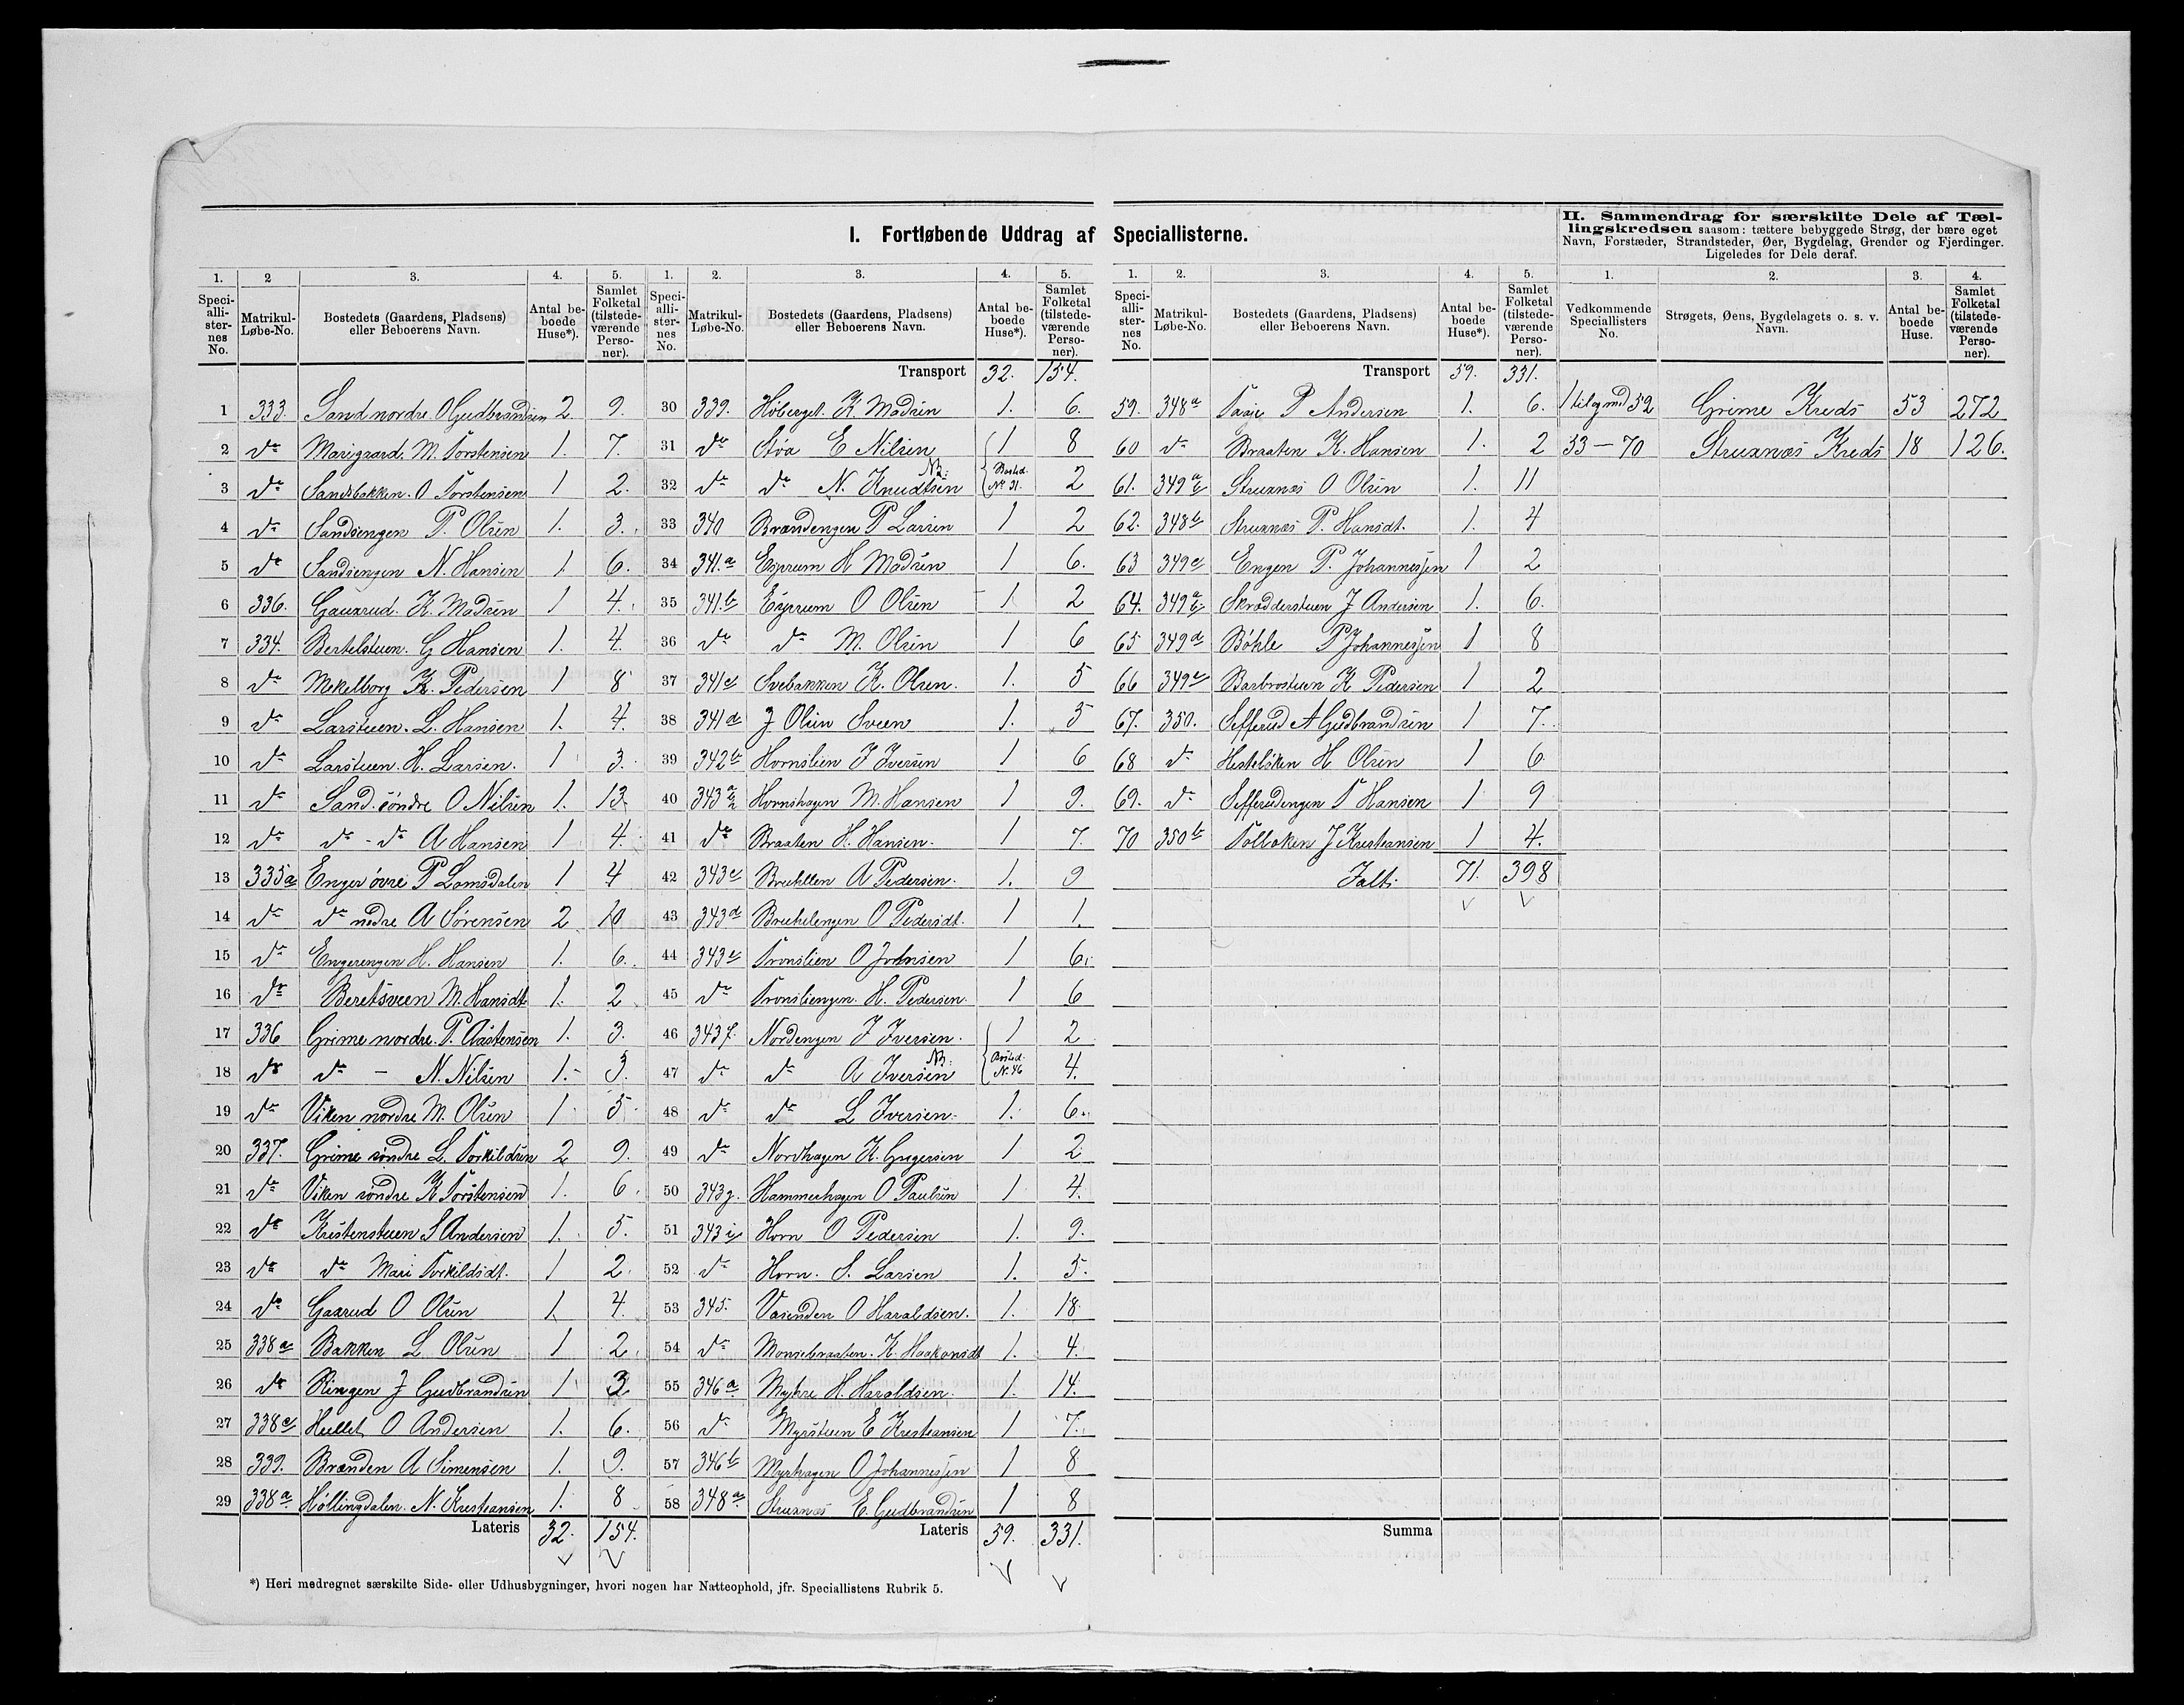 I. Fortløbende Uddrag af Speciallisterne.
II. Sammendrag for særskilte Dele af Tæl-
lingskredsen saasom: tættere bebyggede Strøg, der bære eget
Navn, Forstæder, Strandsteder, Øer, Bygdelag, Grender og Fjerdinger.
Ligeledes for Dele deraf.
1. 2 3. 4. 5.
Speciallisternes No. Matrikul-Løbe-No. Bostedets (Gaardens, Pladsens) eller Beboerens Navn. Antal beboede Huse*). Samlet Folketal (tilstedeværende Personer).
1 333. Sand nordre. O Gudbrandsen 2. 9.
2 do Marigaard. M. Torstensen 1. 7.
3 do Sandsbakken. O Torstensen 1 2.
4 do Sandsengen P. Olsen 1. 3.
5 do Sandsengen N. Hansen 1. 6.
6 336. Gauxrud. K. Madsen 1 4.
7 334. Bertelstuen. G Hansen 1. 4.
8 do Mekelborg K. Pedersen 1 8
9 do Larstuen. L. Hansen 1. 4.
10 do Larstuen. H. Larsen. 1 3.
11 do Sand. søndre O Nilsen 1. 13.
12 do do - do A Hansen 1 4.
13 335a Enger øvre P Lomsdalen 1 4
14 do do nedre A Sørensen 2 10
15 do Engerengen H. Hansen 1. 6.
16 do Beretsveen M. Hansdt. 1. 2
17 336 Grime nordre. P. Aastensen 1. 3.
18 do do - N. Nilsen 1.- 3.
19 do Viken nordre M. Olsen 1 5
20 337. Grime søndre L. Torkildsen 2 9.
21 do Viken søndre K Torstensen 1. 6.
22 do Kristenstuen S Andersen 1. 5.
23 do do Mari Torkildsdt. 1 2.
24 do Gaxrud O Olsen 1. 4.
25 338a Bakken L Olsen 1 2.
26 do Ringen J Gudbrandsen 1 3
27 338c Hullet O Andersen 1. 6.
28 339. Brænden A Simensen 1. 9.
29 338a. Høllingdalen. N. Kristiansen 1. 8
Lateris 32. 154.
1. 2. 3. 4. 5.
Speciallisternes No. Matrikul-Løbe-No. Bostedets (Gaardens, Pladsens) eller Beboerens Navn. Antal beboede Huse*). Samlet Folketal (tilstedeværende Personer).
Transport 32. 154.
30 339. Høberget. K. Madsen 1. 6.
31 do Støa E Nilsen 1 8
32 do do N. Knudtsen NB. Bosted. No 31. 2
33 340 Brændengen P Larsen 1 2
34 341.a Esprum H Madsen 1 6.
35 341.b Esprum O Olsen 1 2
36 do do M. Olsen 1 6
37 341c Svebakken K. Olsen. 1. 5
38 341d J Olsen Sveen 1. 5
39 342b Hornslien J Iversen 1 6
40 343 a Hornshagen M. Hansen 1 9.
41 do Braaten H. Hansen. 1 7.
42 343c A Pedersen. 1. 9
43 343d O Pedersdt. 1 1.
44 343e Tronslien O Johnsen 1 6.
45 do Tronsliengen. H. Pedersen. 1 6
46 343f. Nordengen J Iversen. 1 2
47 do do A Iversen NB. Bosted. No. 46 4.
48 do do L Iversen. 1. 6.
49 do Nordhagen K. Gugersen 1 2
50 343g. Hammerhagen O Paulsen 1 4.
51 343 i Horn O Pedersen 1. 9.
52 do Horn. S. Larsen 1. 5.
53 345. Vasenden O Haraldsen. 1. 18.
54 do Monsebraaten. K. Haakonsdt 1. 4.
55 346a Myhre H. Haraldsen. 1. 14.
56 do Myrstuen E Kristiansen 1 7.
57 346b Myrhagen O Johannessen 1 8
58 348a Struxnæs E. Gudbrandsen 1 8
Lateris 59. 331.
*) Heri medregnet særskilte Side- eller Udhusbygninger, hvori nogen har Natteophold, jfr. Speciallistens Rubrik 5.
1. 2. 3. 4. 5.
Speciallisternes No. Matrikul-Løbe-No. Bostedets (Gaardens, Pladsens) eller Beboerens Navn. Antal beboede Huse*). Samlet Folketal (tilstedeværende Personer).
Transport 59. 331.
59. 348a P Andersen 1. 6.
60 do Braaten K. Hansen 1. 2
61. 349 a Struxnæs O Olsen 1. 11
62. 348b Struxnæs P. Hansdt. 1. 4
63 349c Engen P. Johannessen 1 2
64. 349a Skrædderstuen J Andersen 1. 6.
65 349d Bøhle P Johannessen 1 8
66 349e Barbrostuen K Pedersen 1 2
67. 350. Sefferud A Gudbrandsen 1 7.
68 do H Olsen 1 6
69. do Sefferudengen T Hansen 1 9
70 350b J Kristiansen 1 4.
Ialt. 71. 398
Summa
1. 2. 3. 4.
Vedkommende Speciallisters No. Strøgets, Øens, Bygdelagets o. s. v. Navn. Antal beboede Huse. Samlet Folketal (tilstedeværende Personer).
1 til og md 52 Grime Kreds 53 272
53 - 70 Struxnæs Kreds 18 126.